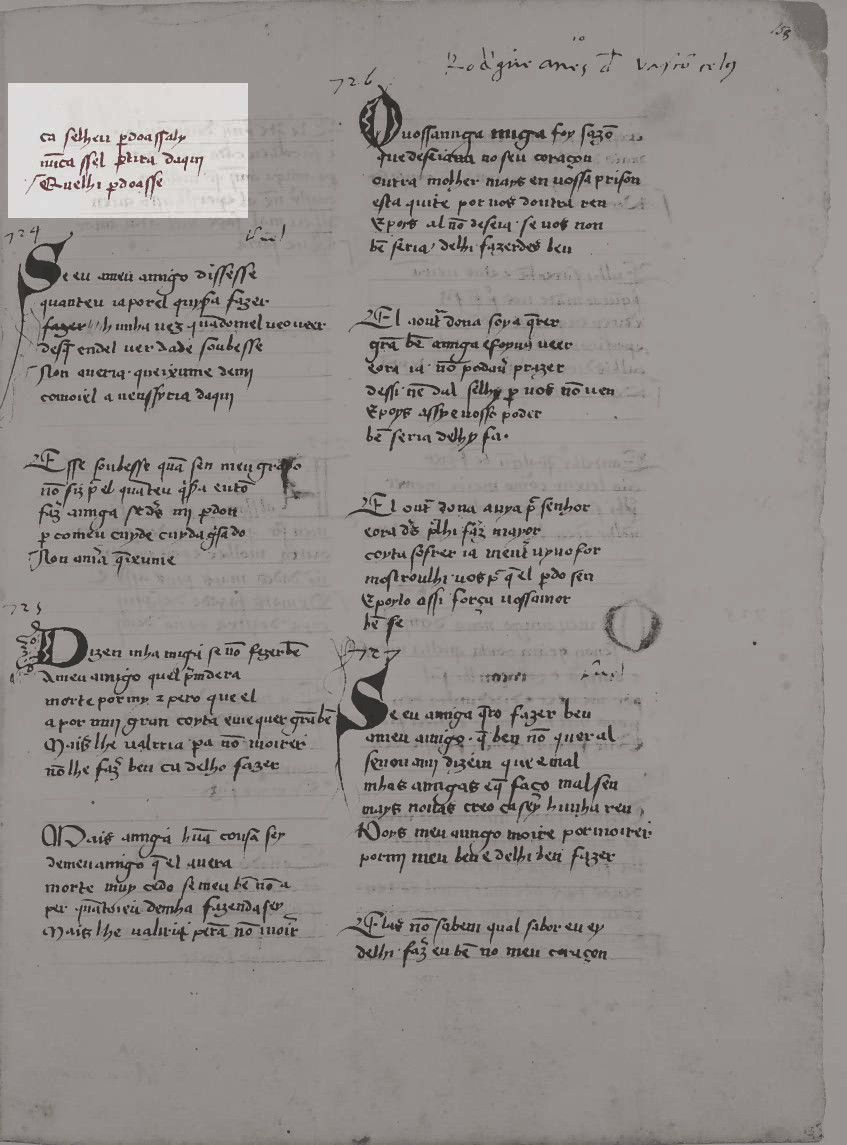 153
ca selheu p̃doassaly
nũca ssel p̃tira daqui
Quelhi p̃doasse
724
Se eu ameu amigo dissesse
quanteu ia porel quix̃a fazer
fazer hunha uez quãdomel ueo ueer
desq̃ endel uerdade soubesse
Non aueria queixume demj
comoiel a uenssyria daqui
Esse soubesse quã sen meu grado
nõ fiz p̃ el quanteu q̃sa entõ
faz̃ amiga se ds̃ mi p̃don
p̃ comeu cuyde cuyda g̃sado
Non aũia q̃ixume
725
Dizen mha miga se nõ fezer bẽ
Ameu amigo quel p̃nderá
morte por my z pero que el
a por min gran coyta e me quer grã bẽ
Mais lhe ualrria pa nõ moirer
nõ lhe faz̃ ben ca delho fazer
Mais amiga hũa cousa sey
demeu amigo q̃ el auera
morte muy cedo se meu bẽ nõ a
per quãtoieu demha fazenda sey
Mais lhe ualiria pera nõ moir̃
Rodrigue anes d̃ vascõcelos
726
O uossamiga miga foy sazõ
que deseiaua no seu coraçon
outra molher mays en uossa prison
esta quite por uos doutra ren
E poys al nõ deseia se uos non
bẽ seria delhi fazerdes ben
El aout̃ dona soya q̃rer
grã bẽ amiga e foyun ueer
e ora ia nõ podau̾ prazer
dessi nẽ dal selhy p̃ uos nõ uen
E poys assy e uosso poder
bẽ seria delhy fa.
El out̃ dona auya p̃ senhor
e ora ds̃ p̃lhi faz̃ mayor
coyta sofrer ia ment̃ uyuo for
mostroulhi uos p̃ q̃ el p̃do sen
E poylo assi força uossamor
bẽ se
727
Se eu amiga q̃ro fazer ben
ameu amigo q̃ ben nõ quer al
senon amj dizen que e mal
mhas amigas e q̃ faço mal sen
mays nonas creo ca sey hunha ren
Poys meu amigo moire por moirer
por mj meu ben e delhi ben fazer
Elas nõ sabem qual sabor eu ey
delhi faz̃ eu bẽ no meu coraçon